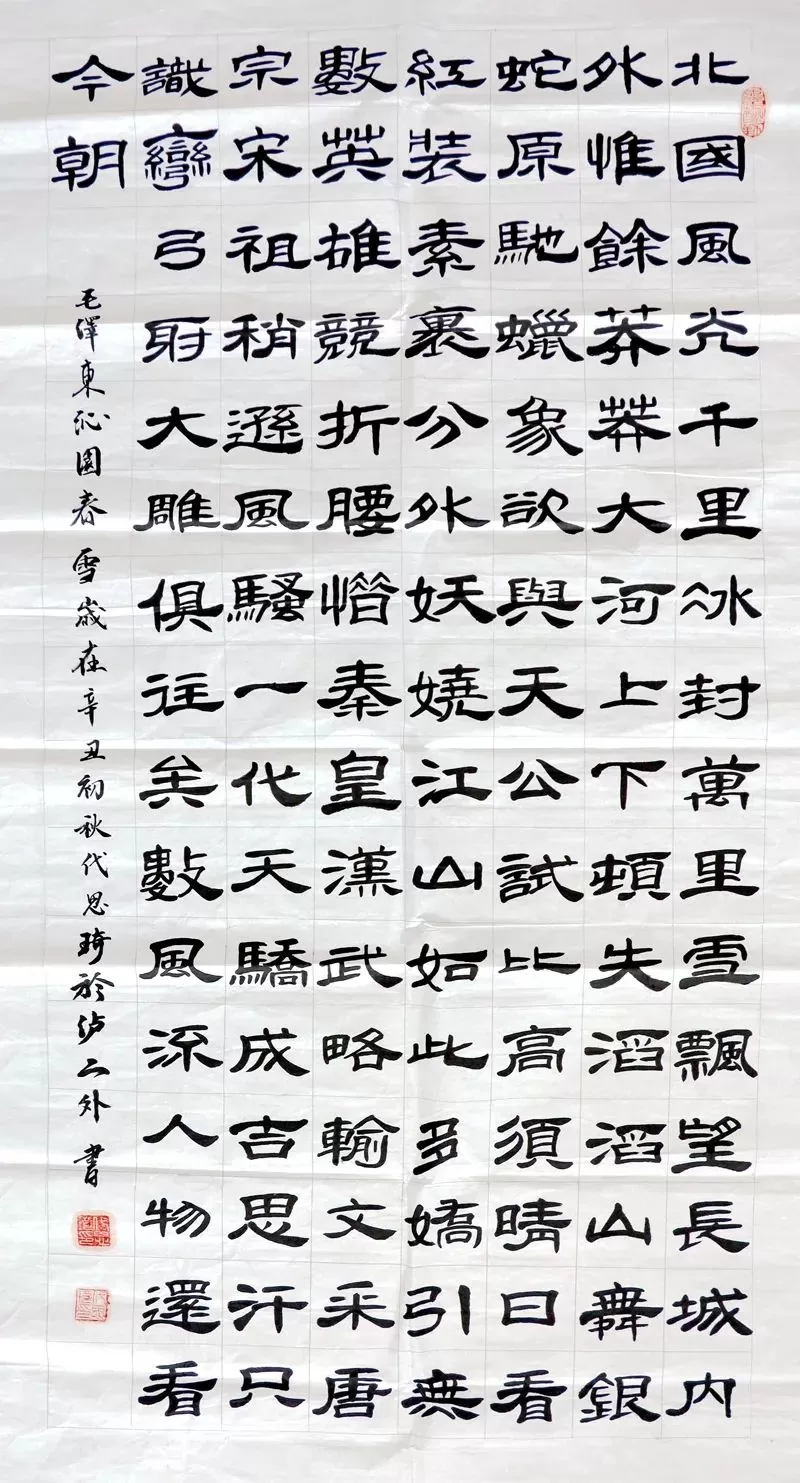 北國風光千里冰封萬里雪飄望長城内
外惟餘莽莽大河上下頓失滔滔山舞銀
蛇原馳蠟象欲與天公試比高須晴日看
紅裝素裹分外妖嬈江山如此多嬌引無
數英雄競折腰惜秦皇漢武略輸文采唐
宗宋祖稍遜風騷一代天驕成吉思汗只
識彎弓射大雕俱往矣數風流人物還看
今朝
毛澤東沁園春雪歲在辛丑初秋代思琦於泸二外書